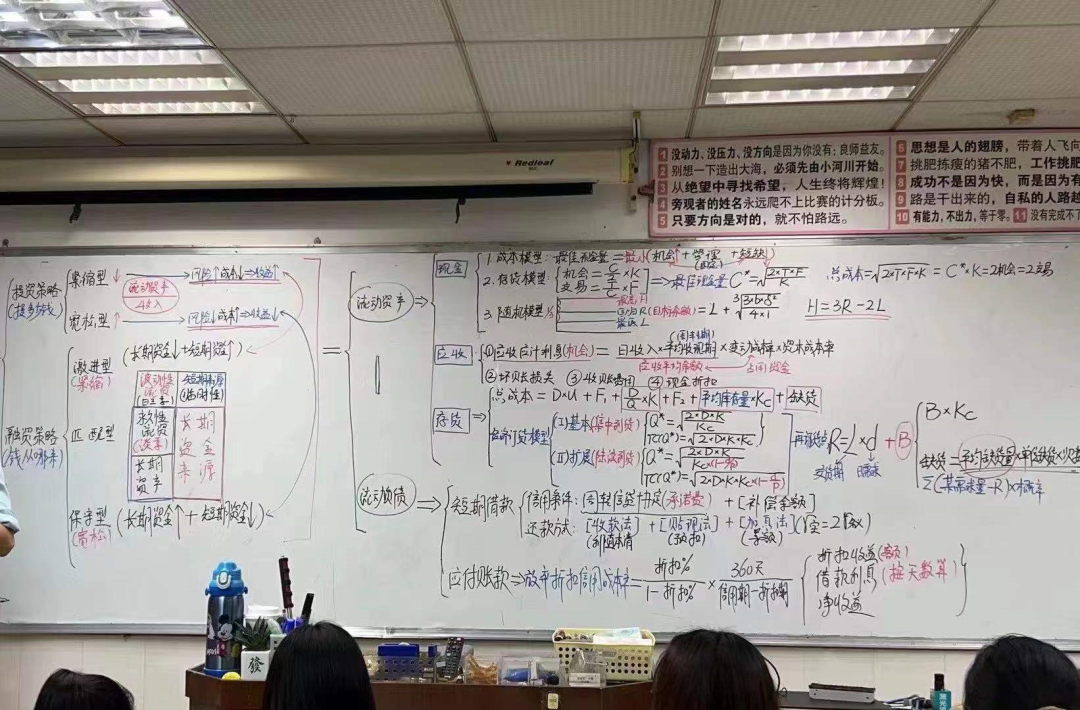 Redleaf
1 没动力、没压力、没方向是因为你没有；良师益友。
2 别想一下造出大海，必须先由小河川开始。
3 从绝望中寻找希望，人生终将辉煌！
4 旁观者的姓名永远爬不上比赛的计分板。
5 只要方向是对的，就不怕路远。
6 思想是人的翅膀，带着人飞向
7 挑肥拣瘦的猪不肥，工作挑肥
8 成功不是因为快，而是因为有
9 路是干出来的，自私的人路越
10 有能力，不出力，等于零。 11 没有完成不了
投资策略
紧缩型↓ → 风险↑成本↓⇒收益↑
流动资产
收入
宽松型↑ → 风险↓成本↑⇒收益↓
融资策略
(钱从哪来)
激进型 (长期资金↓+短期资金↑)
(紧缩)
波动性
流资
短期来源
(临时性)
匹配型
永久性
流资
长期
资产
长期
资金
来源
保守型 (长期资金↑+短期资金↓)
(宽松)
=
流动资产 ⇒
现金
1. 成本模型：最佳现金量=最小(机会+管理+短缺)
2. 存货模型 机会=C/2×K
交易=T/C×F
⇒最佳现金量 C*=√(2×T×F/K)
总成本=√(2×T×F×K) = C*×K=2机会=2交易
3. 随机模型
最高 H
回归R(目标余额)=L+∛(3×b×δ²/(4×i))
最低 L
H=3R-2L
应收
①应收应计利息(机会)=日收入×平均收现期×变动成本率×资本成本率
(周转期)
应收平均余额
占用资金
②坏账损失 ③收账费用 ④现金折扣
存货
总成本=D×U+F₁+D/Q×K+F₂+平均库存量×Kc+缺货
订货模型
(Ⅰ)基本(集中到货) Q*=√(2×D×K/Kc)
TC(Q*)=√(2×D×K×Kc)
(Ⅱ)扩展(陆续到货) Q*=√(2×D×K/(Kc×(1-d/p)))
TC(Q*)=√(2×D×K×Kc×(1-d/p))
再订货R=L×d+B
交货期 日需求
B×Kc
缺货=平均缺货量×单位缺货×次数
Σ(某需求量-R)×概率
流动负债 ⇒
短期借款
信用条件：周转信贷协定(承诺费)+[补偿余额]
还款方式：[收款法]+[贴现法]+[加息法](r实=2r名义)
(利随本清) (预扣) (等额)
应付账款⇒放弃折扣信用成本率=折扣%/(1-折扣%)×360天/(信用期-折扣期)
折扣收益
借款利息(按天数算)
净收益
發